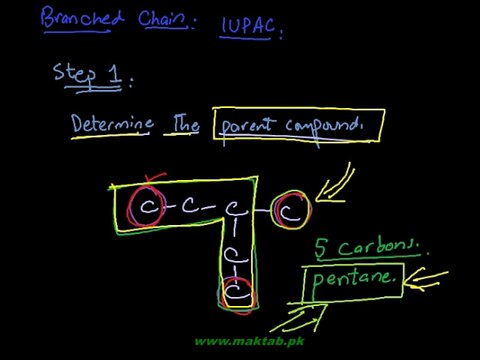 Branched Chain: IUPAC:
Step 1:
Determine The parent compound.
C - C - C - C
C
C
5 Carbons.
pentane.
www.maktab.pk